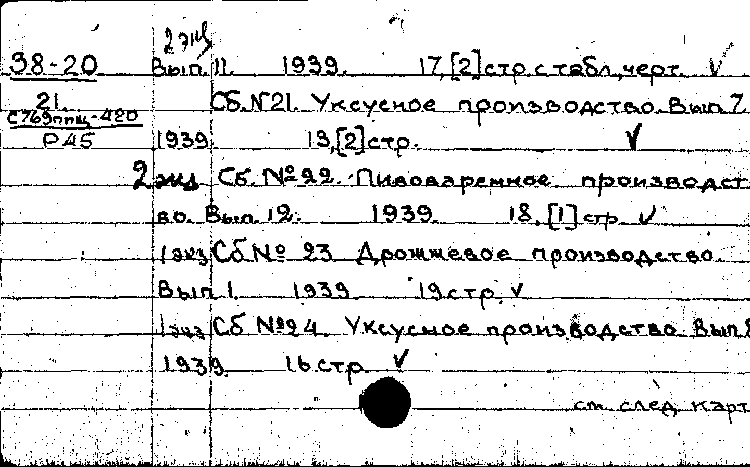 2 экз
38-20 Вып. 11. 1939. 17,[2]стр. с табл., черт. ✓
21. Сб. №21. Уксусное производство. Вып. 7.
Р45 1939. 13,[2]стр. ✓
2 экз Сб. №22. Пивоваренное производст
во. Вып. 12. 1939. 18,[1]стр ✓
1 экз Сб № 23 Дрожжевое производство.
Вып 1. 1939 19 стр. ✓
1 экз Сб №24. Уксусное производство Вып 8
1939. 16 стр ✓
см. след. карт